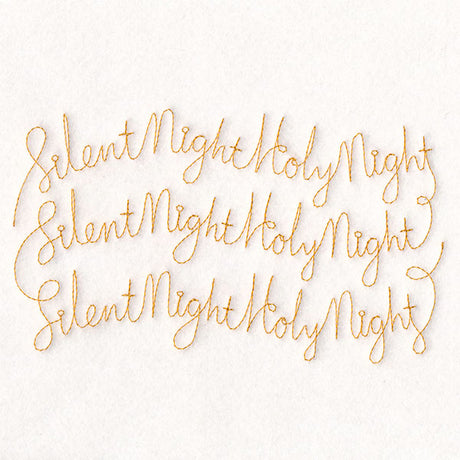 Silent Night Holy Night
Silent Night Holy Night
Silent Night Holy Night